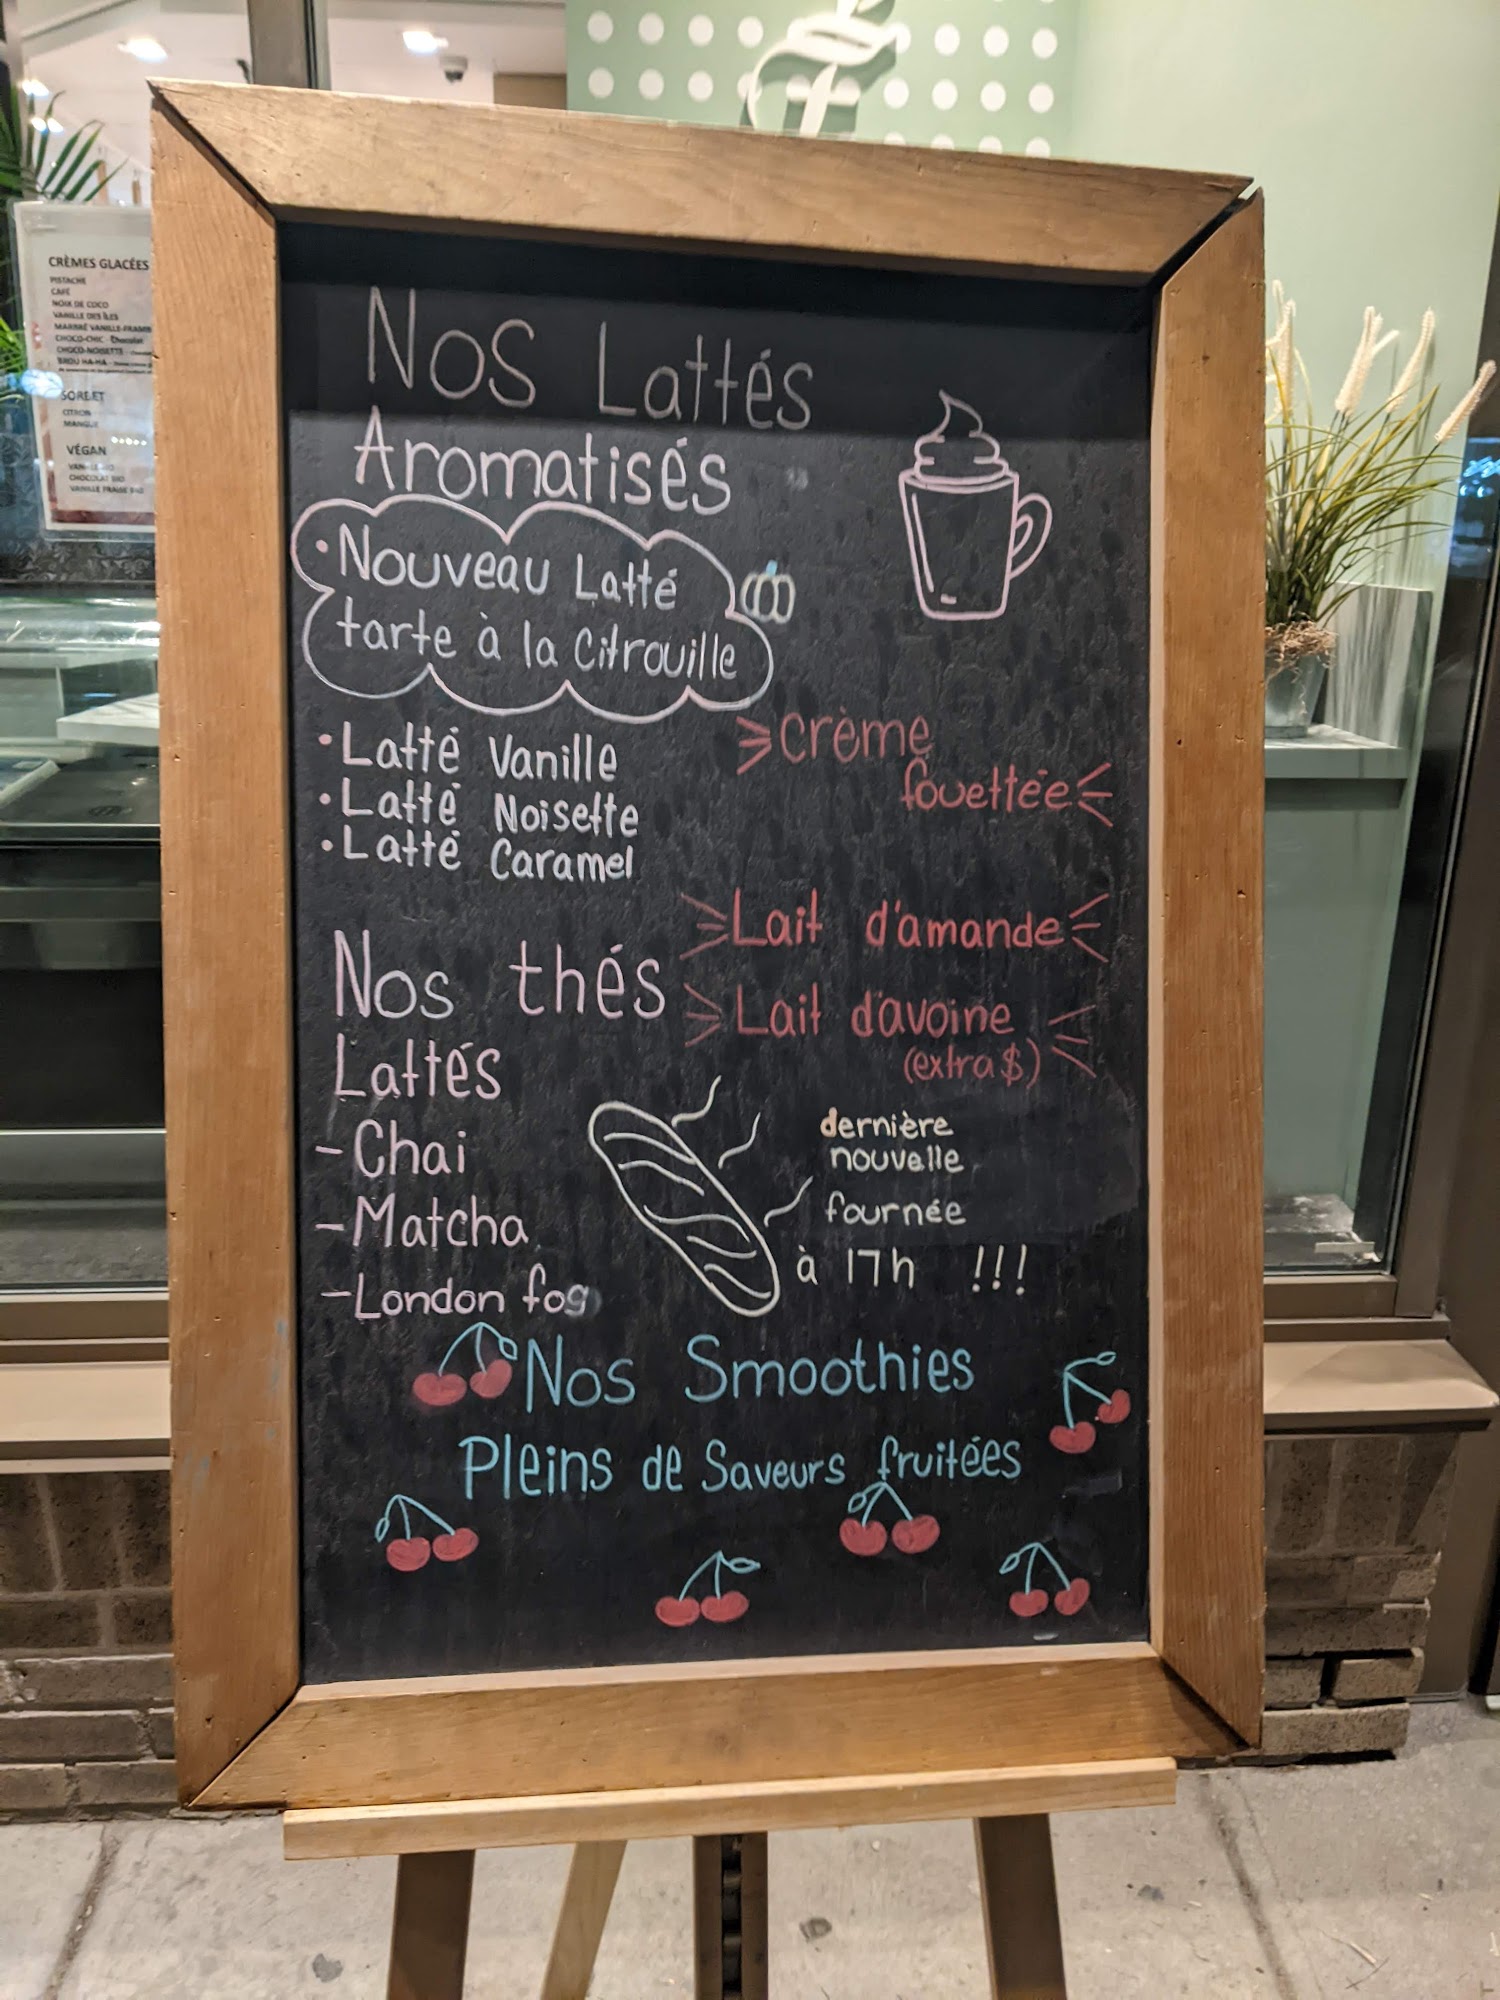 Nos Lattés
Aromatisés
• Nouveau Latté
tarte à la Citrouille
• Latté Vanille
• Latté Noisette
• Latté Caramel
Crème
fouettée
Lait d'amande
Lait d'avoine
(extra $)
Nos thés
Lattés
- Chai
- Matcha
- London fog
dernière
nouvelle
fournée
à 17h !!!
Nos Smoothies
Pleins de Saveurs fruitées
CRÈMES GLACÉES
PISTACHE
CAFÉ
NOIX DE COCO
VANILLE DES ÎLES
MARBRÉ VANILLE-FRAMB
CHOCO-CHIC - Chocolat
CHOCO-NOISETTE
BROU HA-HA
SORBET
CITRON
MANGUE
VÉGAN
CHOCOLAT BIO
VANILLE FRAISE BIO